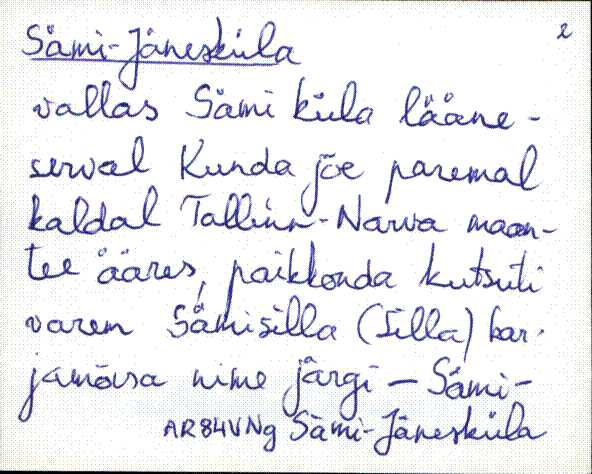 Sämi-Jänesküla
2
vallas Sämi küla lääne-
serval Kunda jõe paremal
kaldal Tallinn-Narva maan-
tee ääres, paikkonda kutsuti
varem Sämisilla (Silla) kar-
jamõisa nime järgi — Sämi-
AR84VNg Sämi-Jänesküla